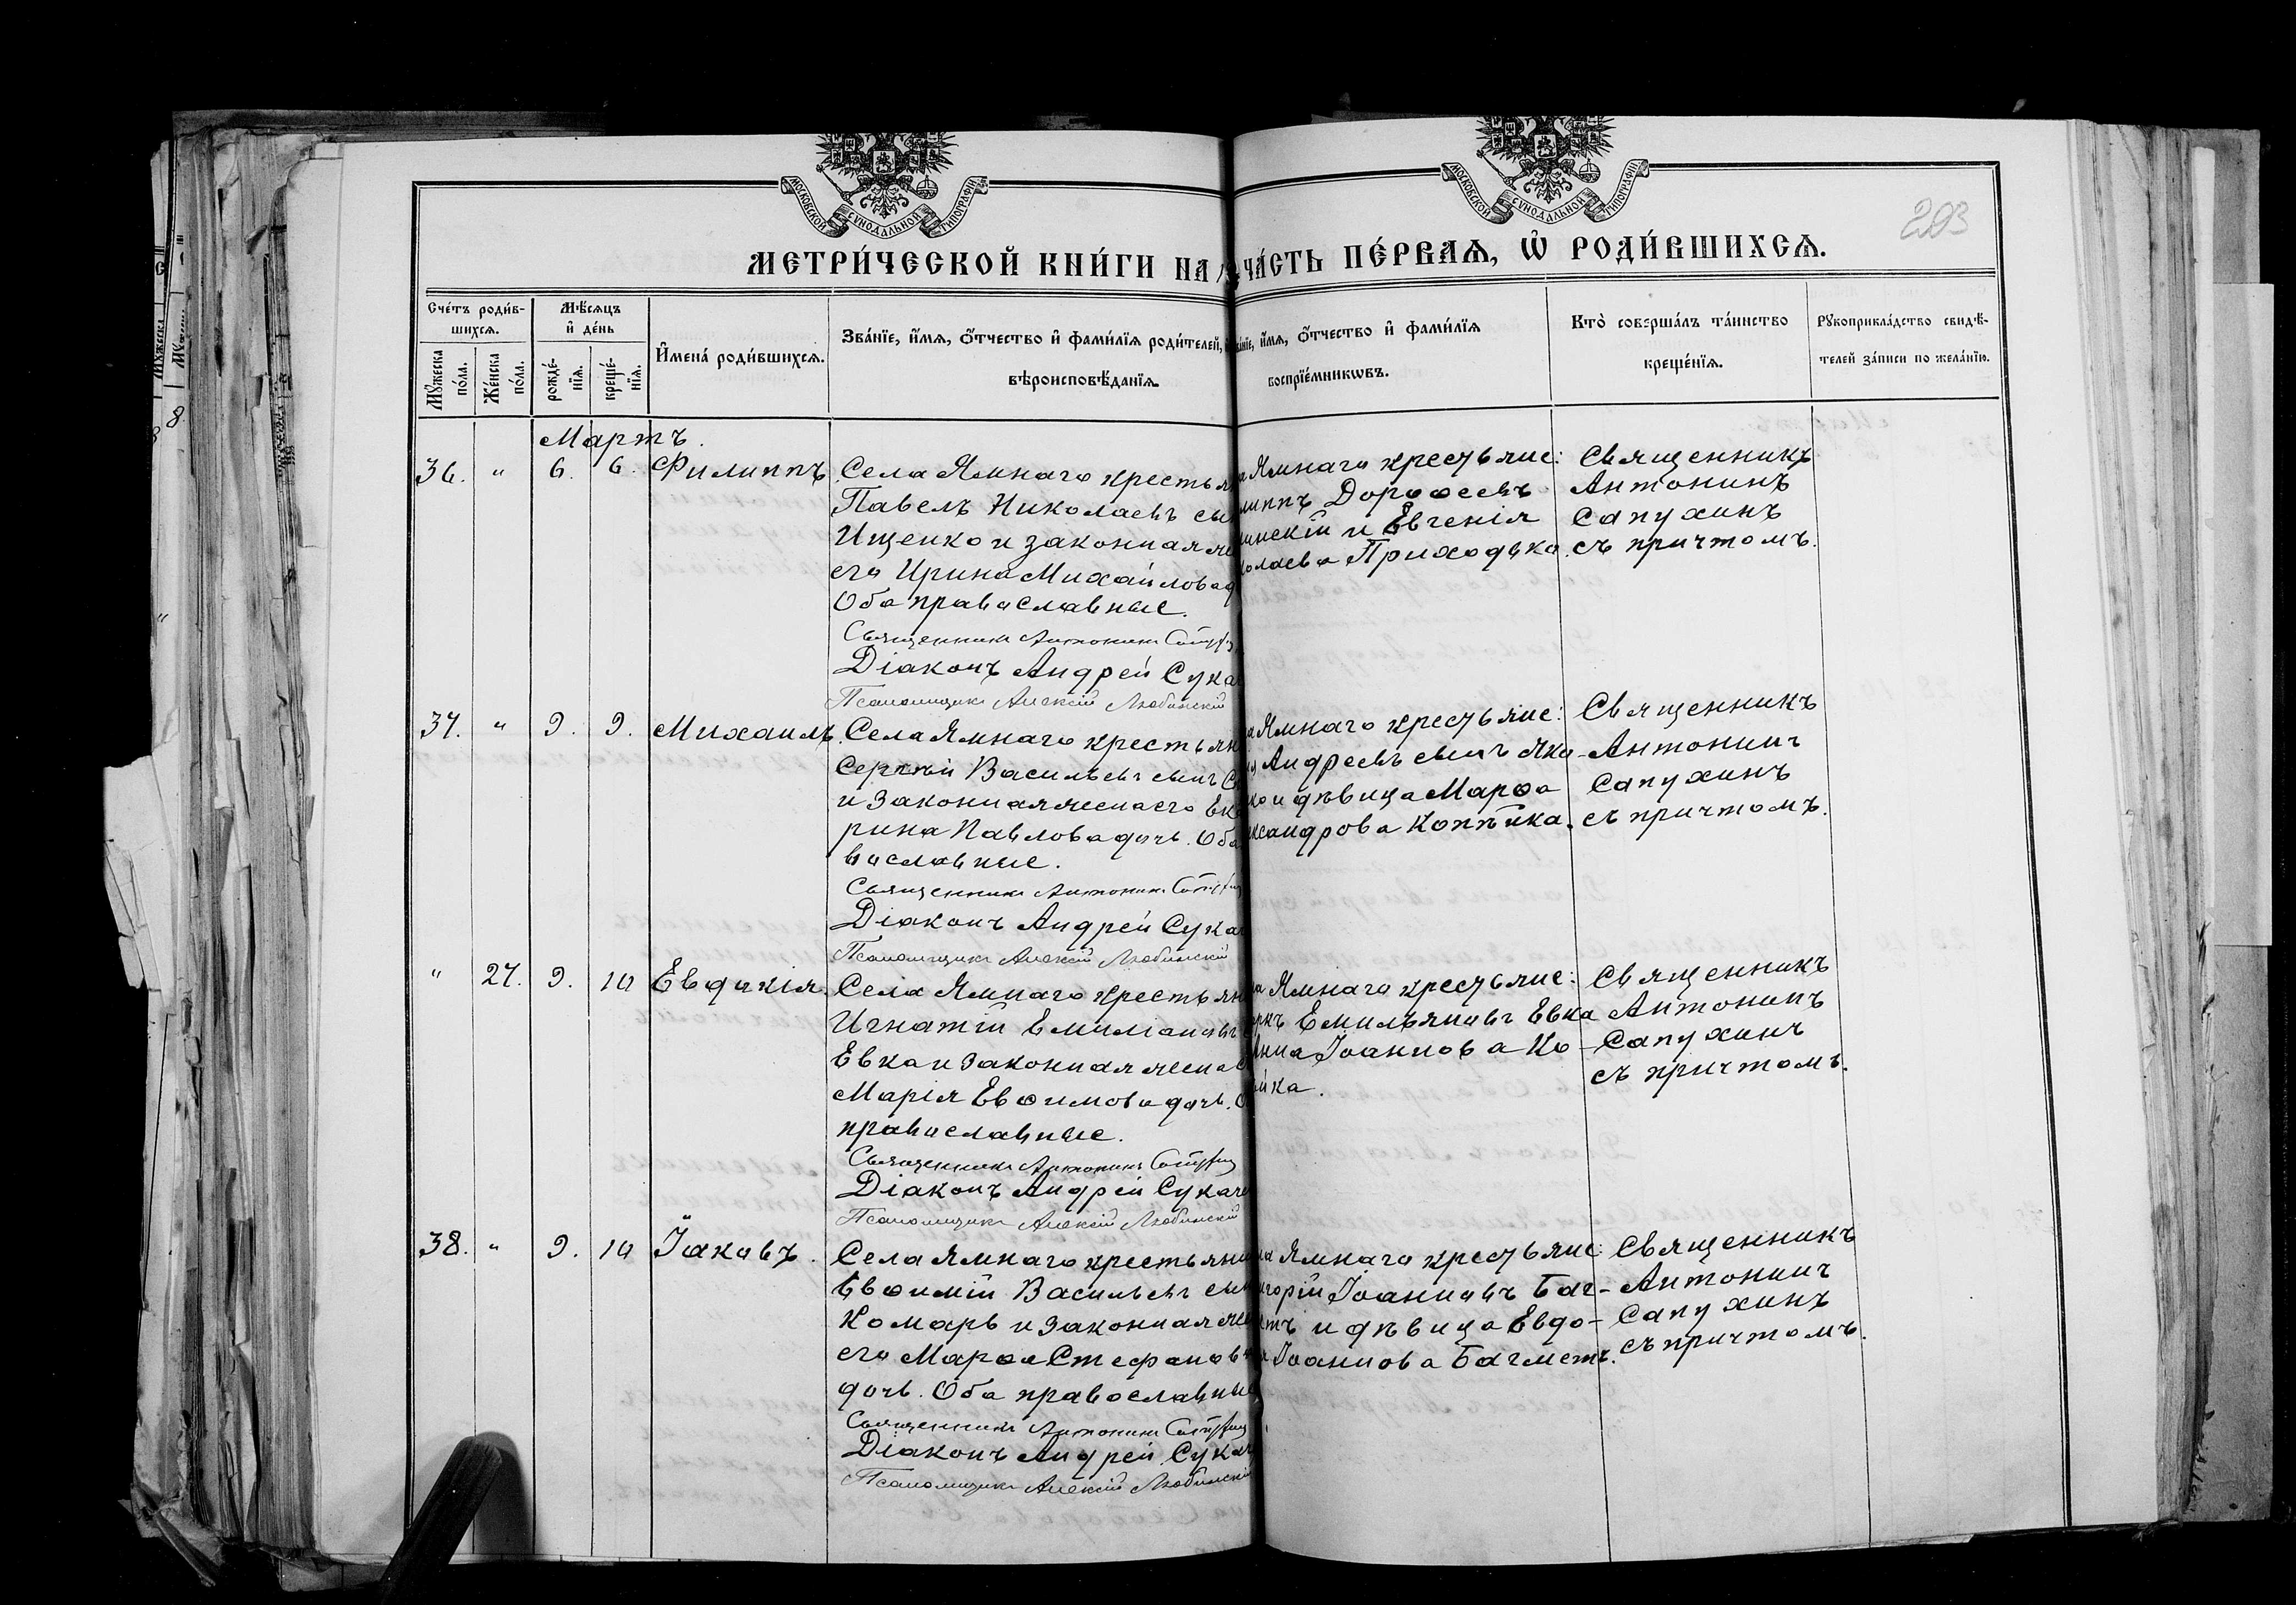 МОСКОВСКОЙ СѴНОДАЛЬНОЙ ТИПОГРАФІИ
МОСКОВСКОЙ СѴНОДАЛЬНОЙ ТИПОГРАФІИ
293
МЕТРИ́ЧЕСКОЙ КНИ́ГИ НА
ЧА́СТЬ ПЕ́РВАѦ, Ѡ҆ РОДИ́ВШИХСѦ.
Сче́тъ роди́в-
шихсѧ.
Мꙋ́жеска
по́ла.
Же́нска
по́ла.
Мѣ́сѧцъ
и҆ де́нь
рожде́-
нїѧ.
креще́-
нїѧ.
И҆мена̀ роди́вшихсѧ.
Зва́нїе, и҆́мѧ, ѻ҆́тчество и҆ фами́лїѧ роди́телей,
вѣроисповѣ́данїѧ.
и҆́мѧ, ѻ҆́тчество и҆ фами́лїѧ
воспрїе́мникѡвъ.
Кто̀ соверша́лъ та́инство
креще́нїѧ.
Рꙋкоприкла́дство свидѣ́-
телей за́писи по жела́нїю.
Мартъ.
36. " 6. 6. Филиппъ
Села Ямнаго крестья
Павелъ Николаевъ сы
Ищенко и законная же
его Ирина Михайлова д
Оба православные.
Священникъ Антонинъ
Діаконъ Андрей Сука
Псаломщикъ Алексій Любинскій
Ямнаго крестьяне:
липпъ Дороѳеевъ
инскій и Евгенія
колаева Приходько.
Священникъ
Антонинъ
Сапухинъ
съ причтомъ.
37. " 9. 9. Михаилъ.
Села Ямнаго крестьян
Сергѣй Васильевъ сынъ
и законная жена его Ека
рина Павлова дочь. Оба
вославные.
Священникъ Антонинъ
Діаконъ Андрей Сука
Псаломщикъ Алексій Любинскій
Ямнаго крестьяне:
Андреевъ сынъ Яко-
ко и дѣвица Марѳа
ксандрова Копѣйка.
Священникъ
Антонинъ
Сапухинъ
съ причтомъ.
" 27. 9. 10 Евдокія.
Села Ямнаго крестьян
Игнатій Емиліановъ
Евка и законная жена
Марія Евѳимова дочь. О
православные.
Священникъ Антонинъ
Діаконъ Андрей Сукаче
Псаломщикъ Алексій Любинскій
Ямнаго крестьяне:
ркъ Емильяновъ Евка
Анна Іоаннова Ко-
йка.
Священникъ
Антонинъ
Сапухинъ
съ причтомъ.
38. " 9. 10 Іаковъ.
Села Ямнаго крестьяни
Евѳимій Васильевъ сын
Комарь и законная же
его Марѳа Стефанова
дочь. Оба православные
Священникъ Антонинъ
Діаконъ Андрей Сукач
Псаломщикъ Алексій Любинскій
Ямнаго крестьяне:
игорій Іоанновъ Баг-
етъ и дѣвица Евдо-
Іоаннова Багметъ.
Священникъ
Антонинъ
Сапухинъ
съ причтомъ.